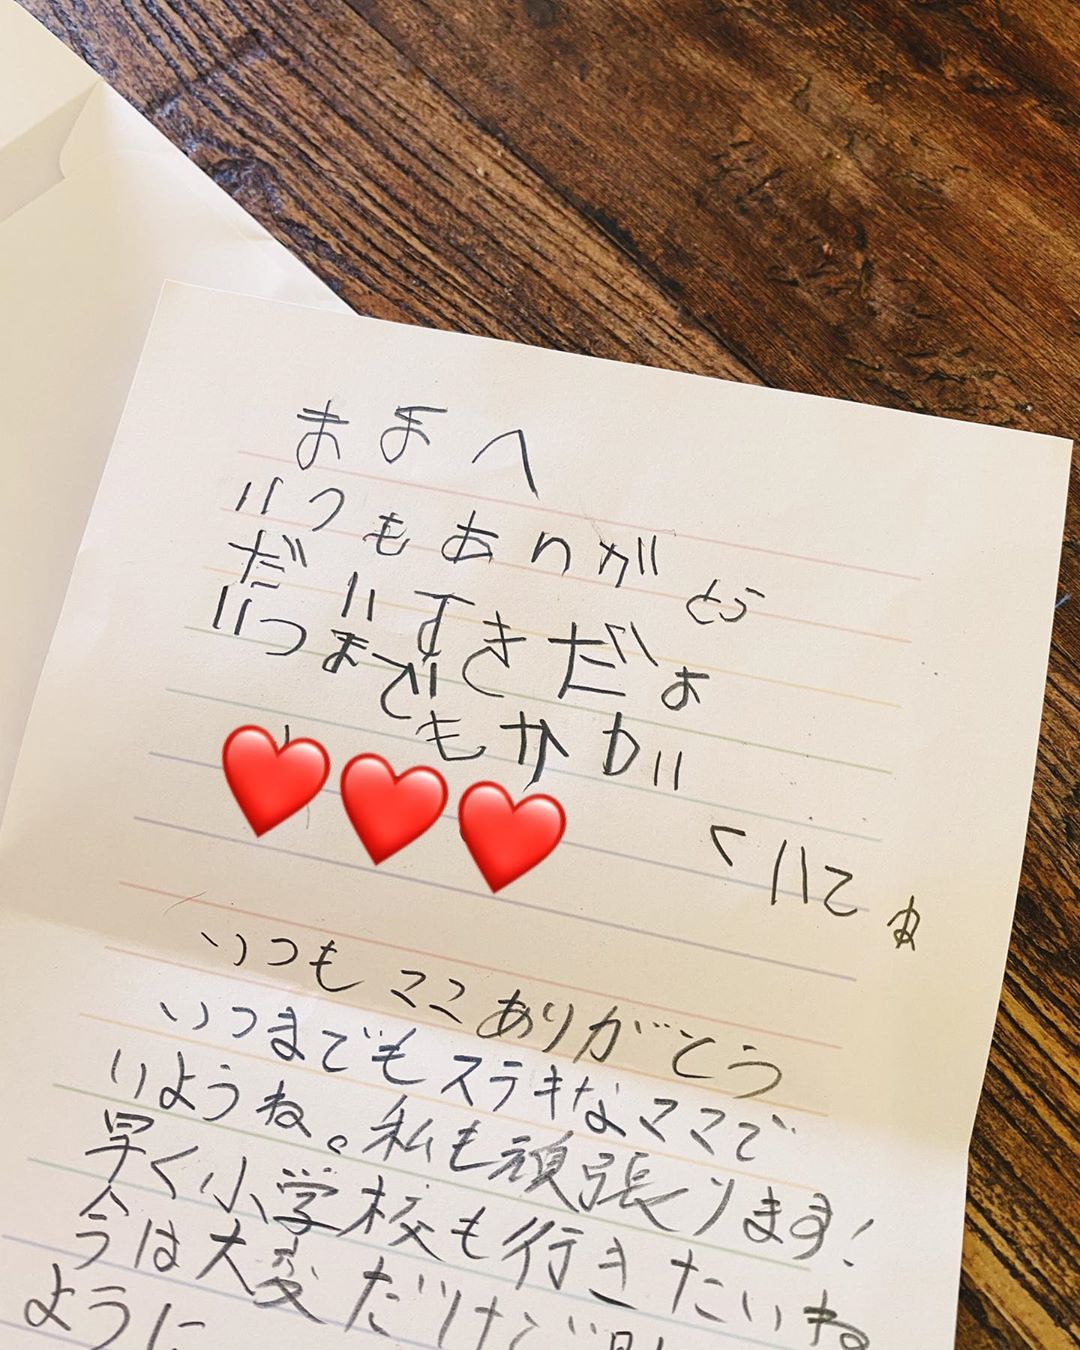 まよへ
いつもありがとう
だいすきだよ
いつまでも かわいくいてね
いつも ココ ありがとう
いつまでもステキなママで
いようね。私も頑張ります!
早く小学校も行きたいね
今は大変だけど
ように